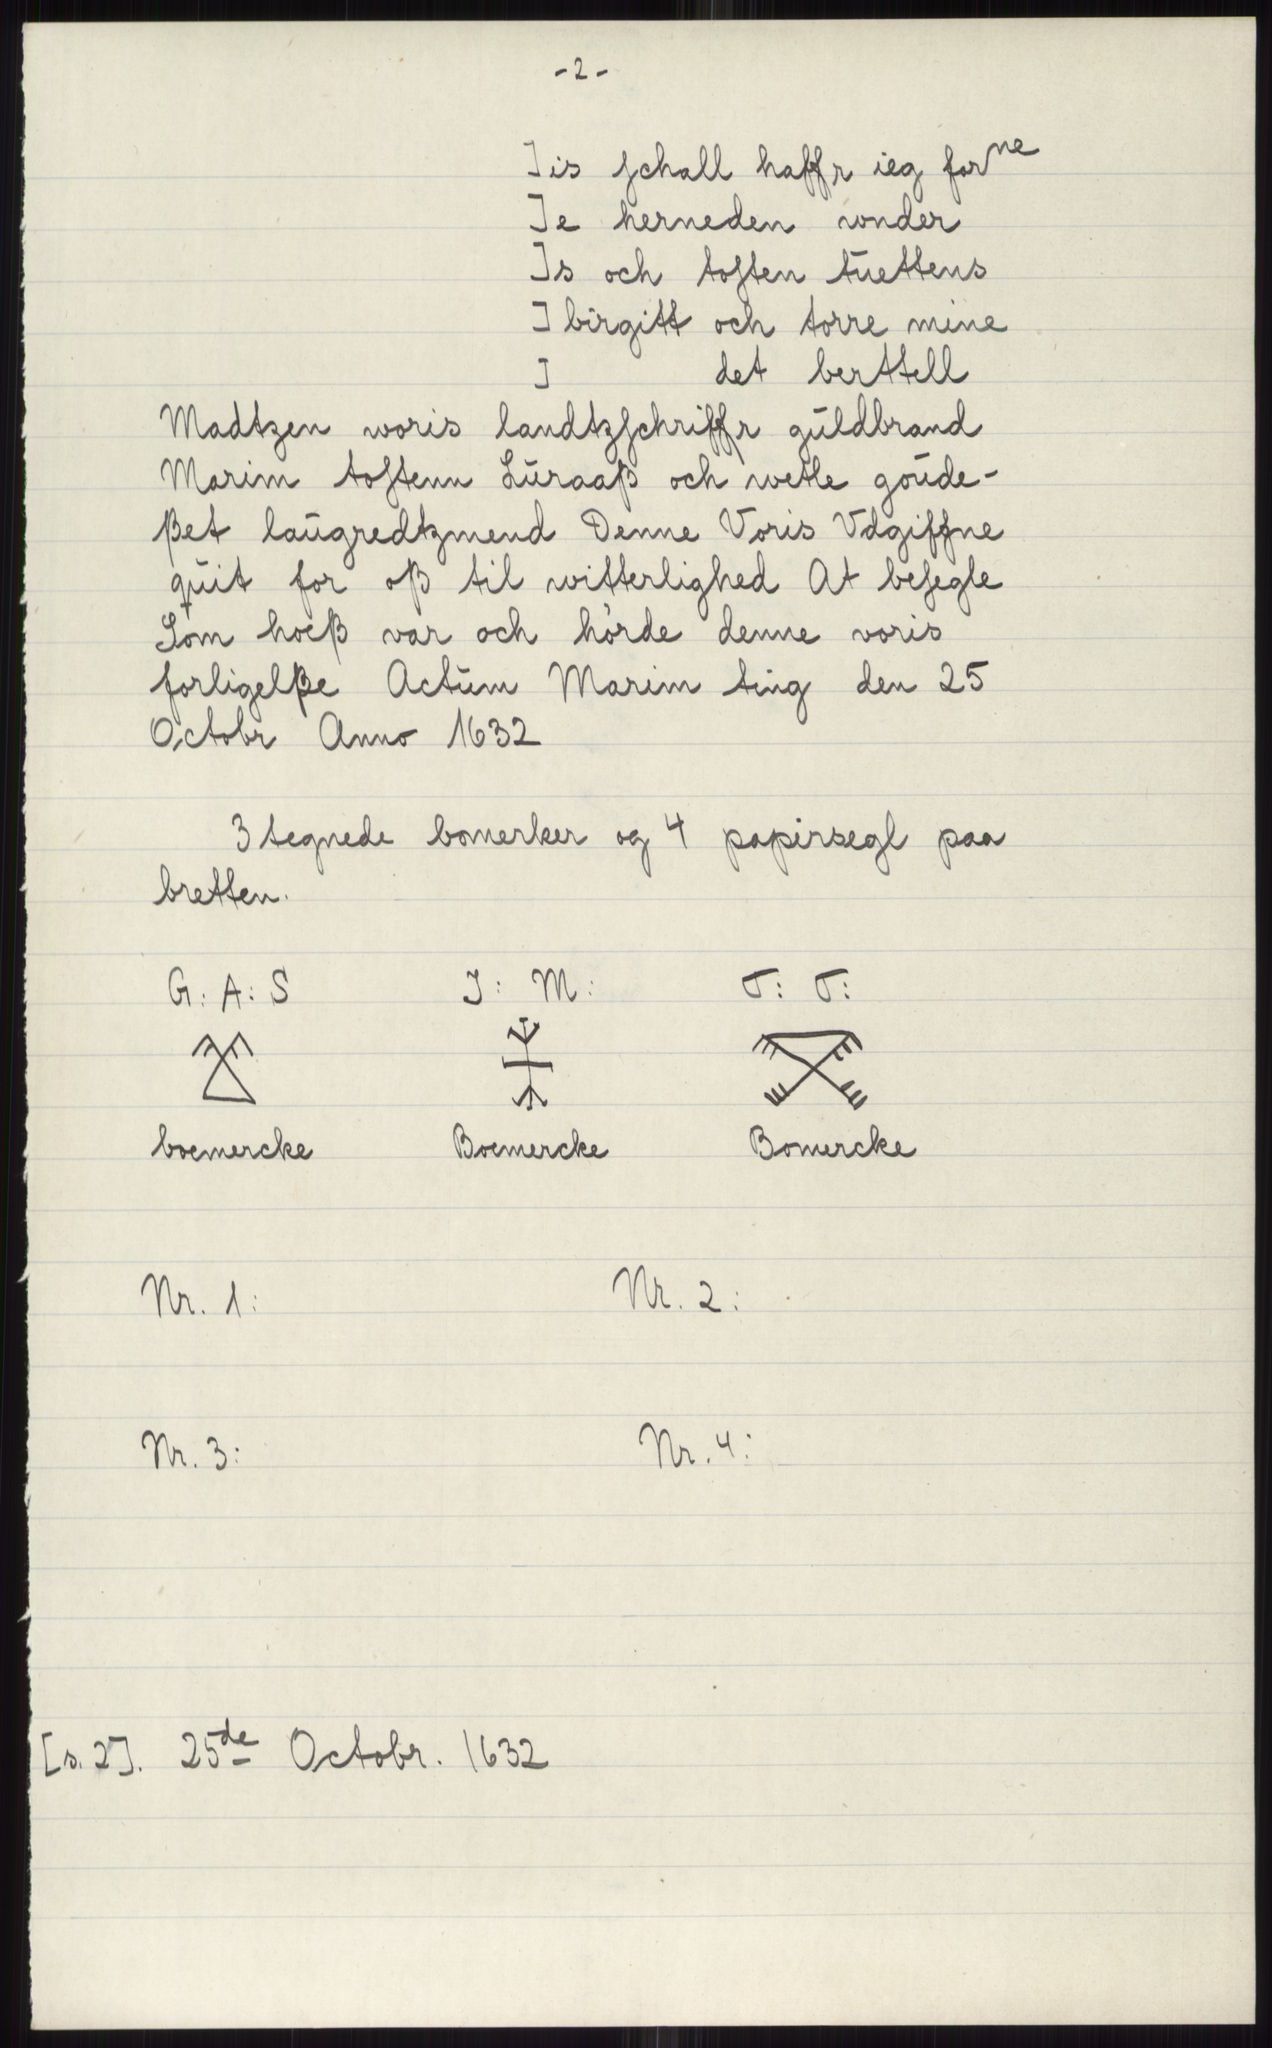 -2-
]is schall haffr ieg forne
]e herneden wnder
]s och tosten tuettens
]birgitt och torre mine
] det berttell
Madtzen woris landtzschriffr guldbrand
Marim tostenn Luraaß och wetle goude-
ßet laugredtzmend Denne Voris Vdgiffne
quit for oß til witterlighed At besegle
Som hoeß var och hörde denne voris
forligelße Actum Marim ting den 25
Octobr Anno 1632
3 tegnede bomerker og 4 papirsegl paa
bretten.
G: A: S J: M: T: T:
boemercke Boemercke Bomercke
Nr. 1: Nr. 2:
Nr. 3: Nr. 4:
[s. 2]. 25de Octobr. 1632